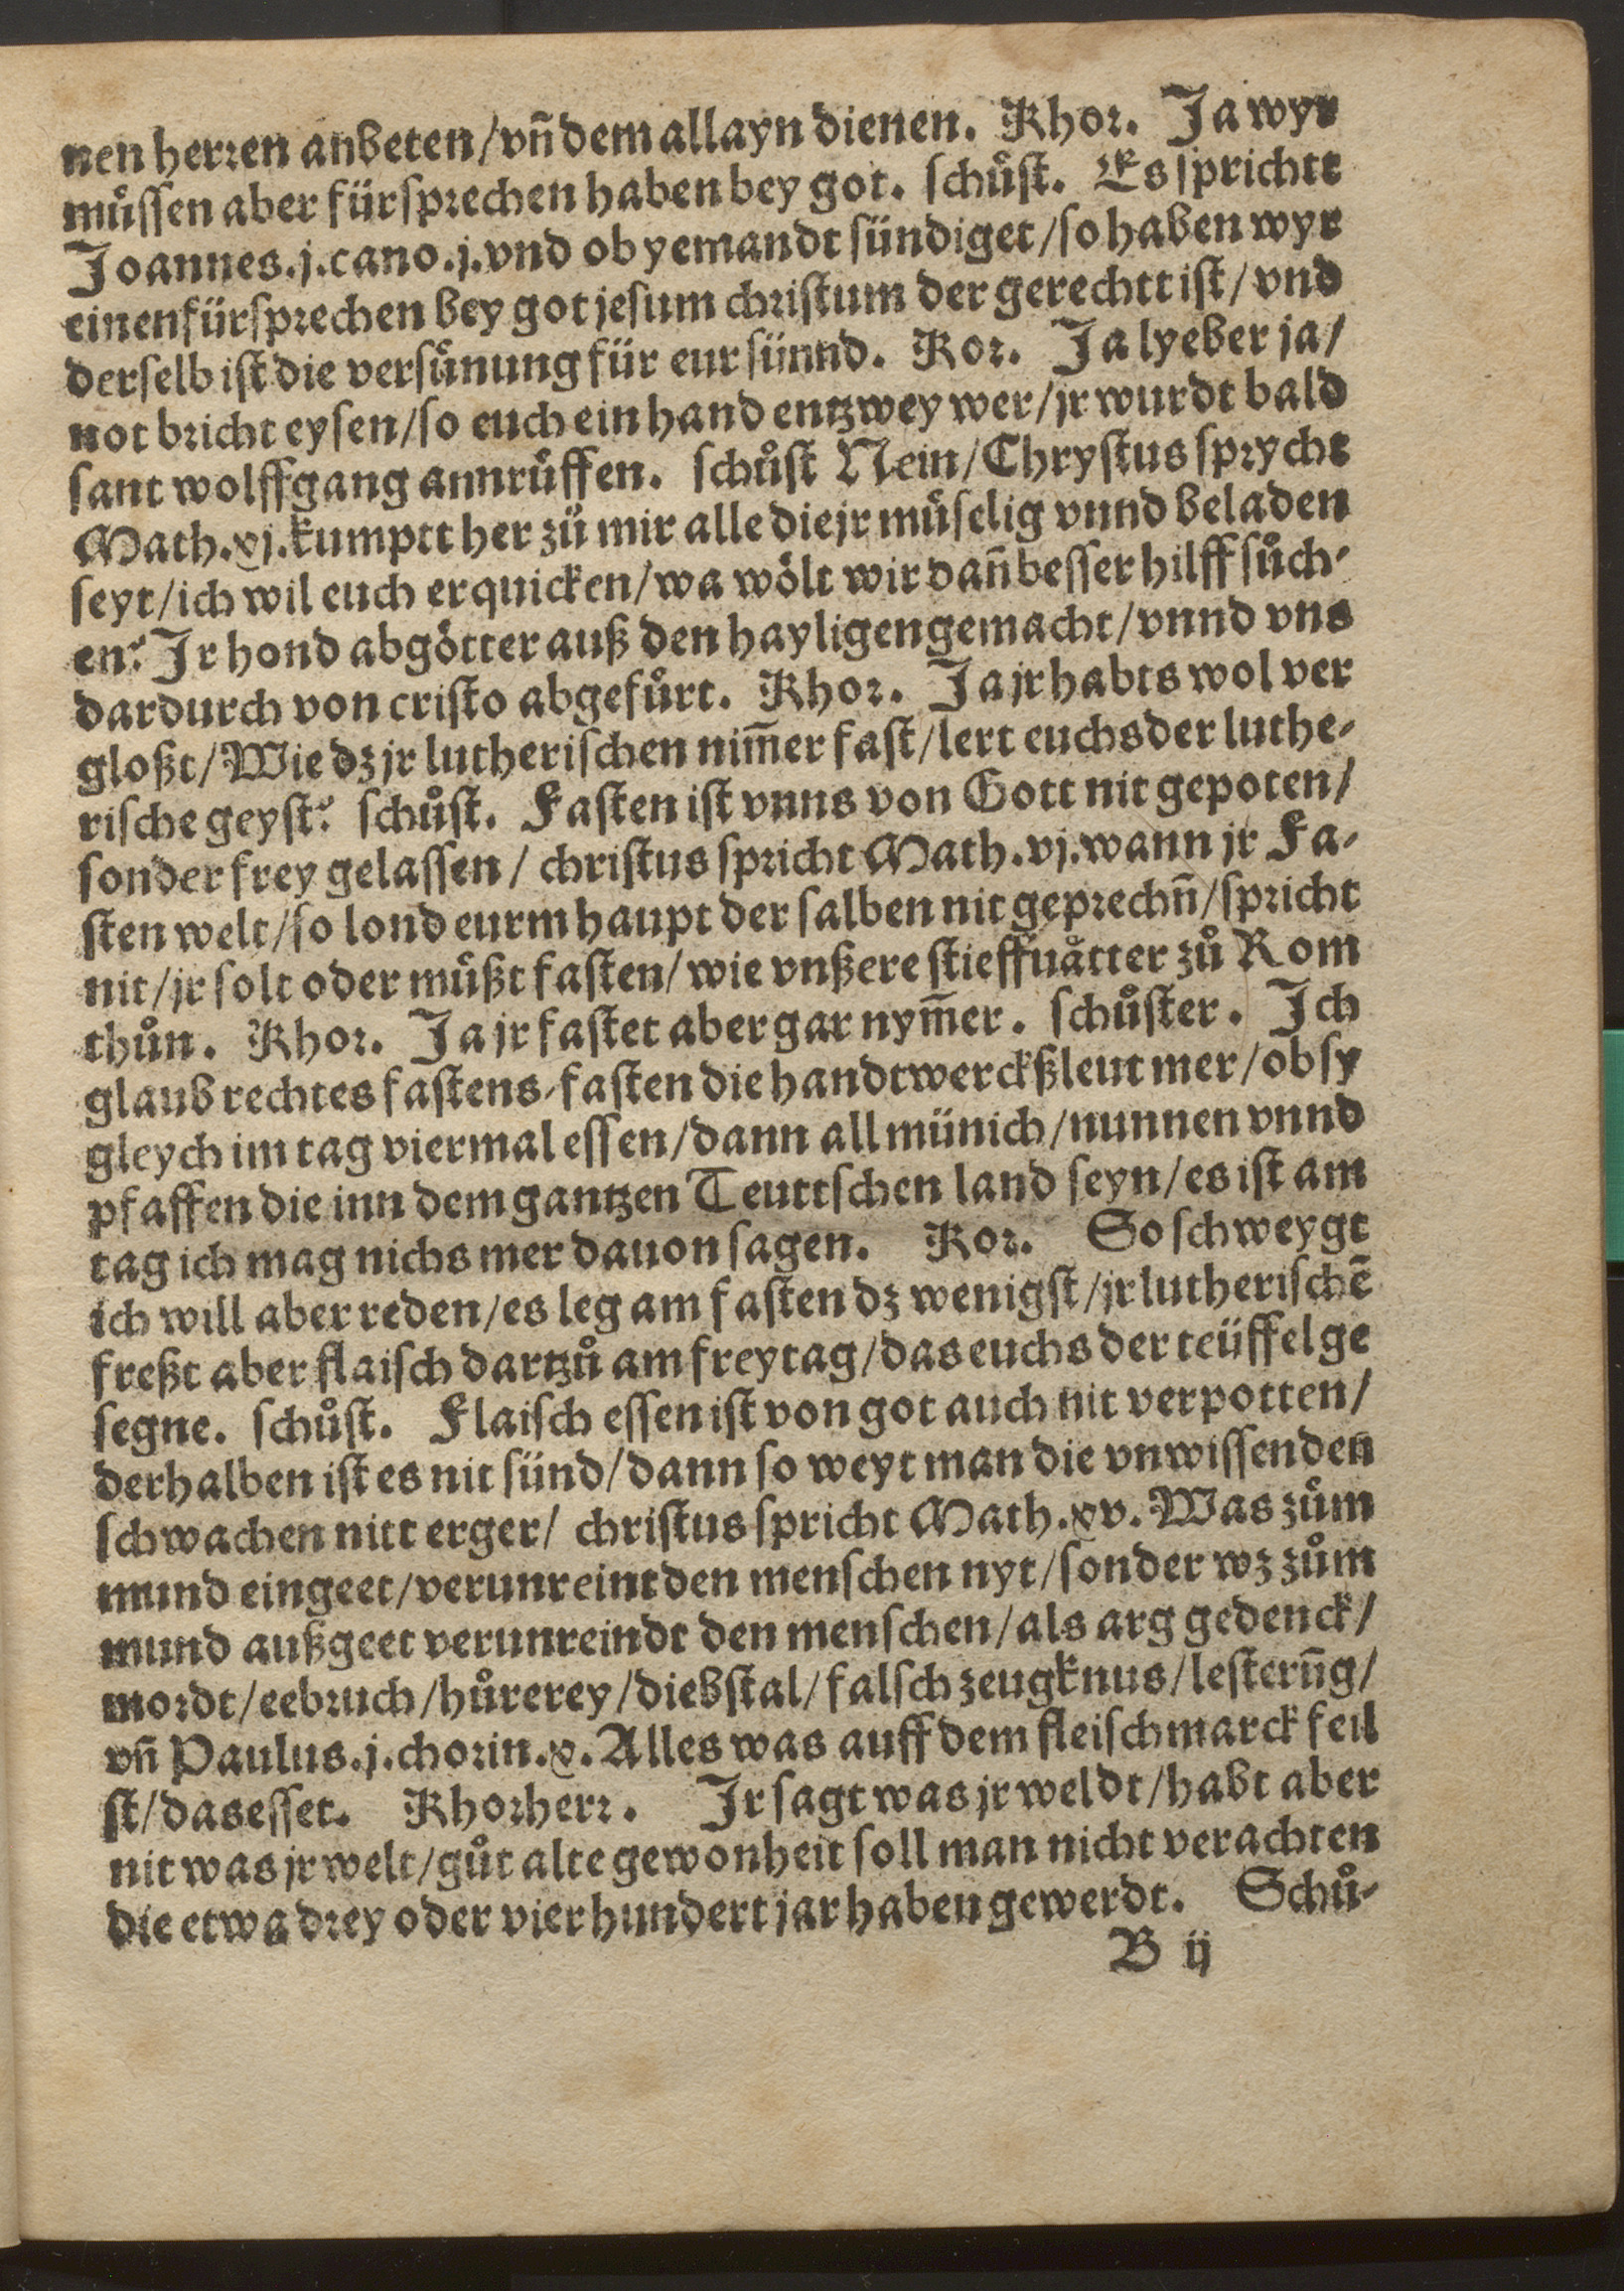 nen herren anbeten/vñ dem allayn dienen. Khor. Ja wyr
můssen aber fürsprechen haben bey got. schůst. Es sprichtt
Joannes.j.cano.j.vnd ob yemandt sündiget/so haben wyr
einen fürsprechen bey got jesum christum der gerechtt ist/vnd
derselb ist die versůnung für eur sünnd. Kor. Ja lyeber ja/
not bricht eysen/so euch ein hand entzwey wer/jr wurdt bald
sant wolffgang annrůffen. schůst Nein/Chrystus sprycht
Math.xj.kumptt her zů mir alle die jr můselig vnnd beladen
seyt/ich wil euch erquicken/wa wölt wir dañ besser hilff sůch⸗
en? Jr hond abgötter auß den hayligen gemacht/vnnd vns
dardurch von cristo abgefůrt. Khor. Ja jr habts wol ver
gloßt/Wie dz jr lutherischen nim̃er fast/lert euchs der luthe⸗
rische geyst? schůst. Fasten ist vnns von Gott nit gepoten/
sonder frey gelassen/ christus spricht Math.vj.wann jr Fa⸗
sten welt/so lond eurm haupt der salben nit geprechñ/spricht
nit/jr solt oder můßt fasten/wie vnßere stieffuåtter zů Rom
thůn. Khor. Ja jr fastet aber gar nym̃er. schůster. Ich
glaub rechtes fastens⸗fasten die handtwerckßleut mer/ob sy
gleych im tag viermal essen/dann all münich/nunnen vnnd
pfaffen die inn dem gantzen Teuttschen land seyn/es ist am
tag ich mag nichs mer dauon sagen. Kor. So schweygt
ich will aber reden/es leg am fasten dz wenigst/jr lutherischẽ
freßt aber flaisch dartzů am freytag/das euchs der teüffel ge
segne. schůst. Flaisch essen ist von got auch nit verpotten/
derhalben ist es nit sünd/dann so weyt man die vnwissenden
schwachen nitt erger/ christus spricht Math.xv. Was zům
mund eingeet/verunreint den menschen nyt/sonder wz zům
mund außgeet verunreindt den menschen/als arg gedenck/
mordt/eebruch/hůrerey/diebstal/falsch zeugknus/lesterũg/
vñ Paulus.j.chorin.x. Alles was auff dem fleischmarck feil
st/das esset. Khorherr. Jr sagt was jr weldt/habt aber
nit was jr welt/gůt alte gewonheit soll man nicht verachten
die etwa drey oder vierhundert jar haben gewerdt. Schů⸗
B ij